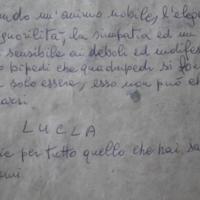 ndo un'animo nobile, l'eleg
gnorilità, la simpatia ed un
sensibile ai deboli ed indifes
bipedi che quadrupedi si fo
solo essere, esso non può
LUCLA
ie per tutto quello che hai